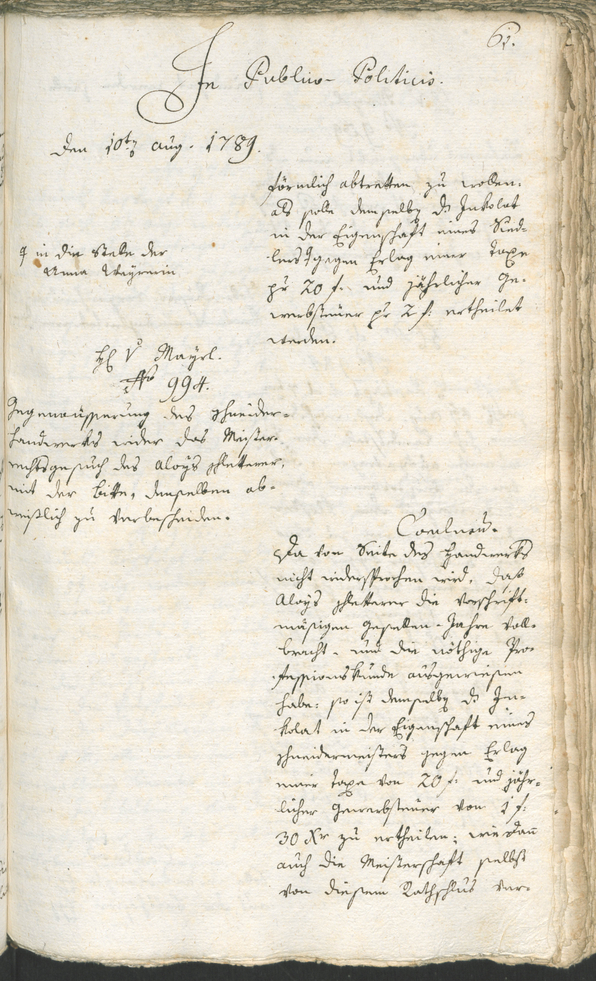 61.
In Publico-Politicis.
den 10ten aug. 1789.
förmlich abtretten zu wollen:
als solle demselben das Inkolat
in der Eigenschaft eines Sied-
lers gegen Erlag einer Taxe
pr 20 f. und jährlicher Ge-
werbsteuer pr 2 f. ertheilet
werden.
in die Stelle der
Anna Mayrerin
H V Mayrl.
No 994.
Gegenäusserung des schneider-
handwerks wider das Meister-
rechtsgesuch des Aloys pletterer,
mit der bitte, demselben ab-
weislich zu verbescheiden.
Conclusum.
Da von Seite des Handwerks
nicht widersprochen wird, daß
Aloys pletterer die vorschrift-
mäsigen Gesellen-Jahre voll-
bracht, und die nöthige Pro-
fessionskunde ausgewiesen
habe: so ist demselben das In-
kolat in der Eigenschaft eines
schneidermeisters gegen Erlag
einer Taxe von 20 f. und jähr-
licher Gewerbsteuer von 1 f.
30 Xr zu ertheilen; wie dann
auch die Meisterschaft selbst
von diesem Rathschlus ver-